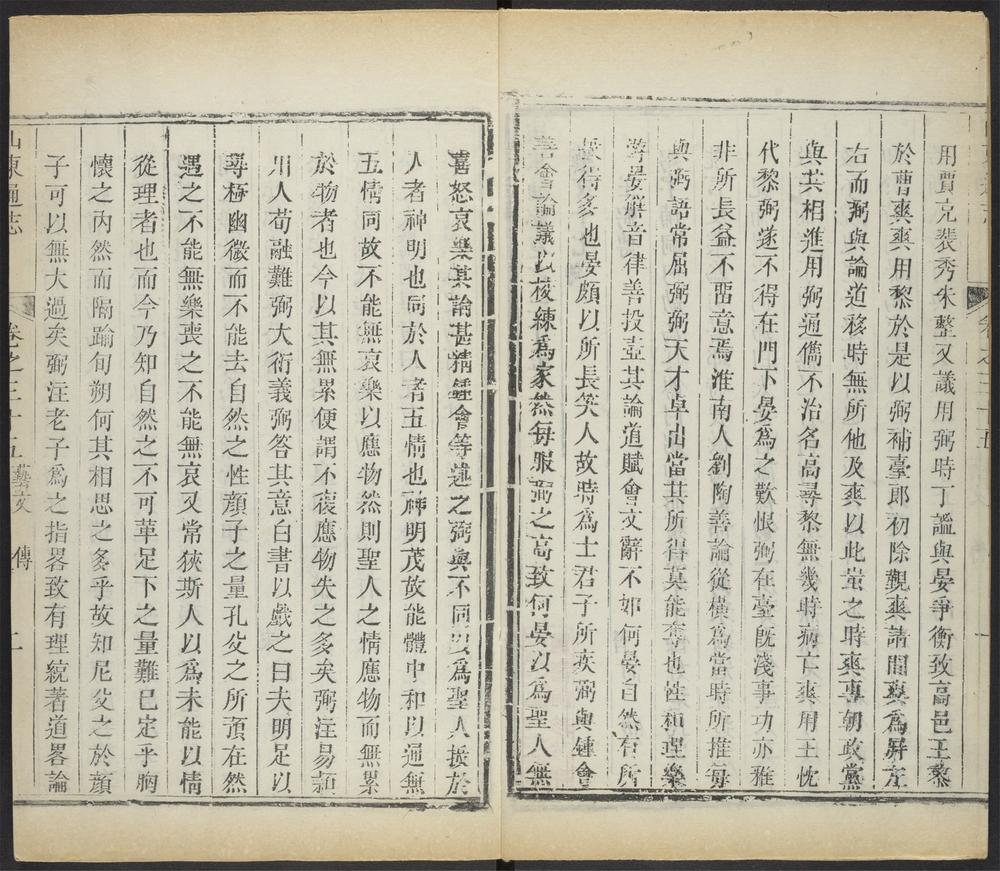 用賈充裴秀朱整又議用弼時丁謐與晏爭衡致高邑王黎
於曹爽爽用黎於是以弼補臺郎初除覲爽請間爽為屏左
右而弼與論道移時無所他及爽以此蚩之時爽專朝政黨
與共相進用弼通儁不治名高尋黎無幾時病亡爽用王忱
代黎弼遂不得在門下晏為之歎恨弼在臺旣淺事功亦雅
非所長益不畱意焉淮南人劉陶善論從橫為當時所推每
與弼語常屈弼弼天才卓出當其所得莫能奪也性和理樂
遊晏觧音律善投壺其論道賦會文辭不如何晏自然有所
拔得多也晏頗以所長笑人故時為士君子所疾弼與鍾會
善會論議以校練為家然每服弼之高致何晏以為聖人無
喜怒哀樂其論甚精鍾會等述之弼與不同以為聖人茂於
人者神明也同於人者五情也神明茂故能體中和以通無
五情同故不能無哀樂以應物然則聖人之情應物而無累
於物者也今以其無累便謂不復應物失之多矣弼注易潁
川人荀融難弼大衍義弼答其意白書以戲之曰夫明足以
尋極幽微而不能去自然之性顔子之量孔父之所預在然
遇之不能無樂喪之不能無哀又常狹斯人以為未能以情
從理者也而今乃知自然之不可革足下之量雖已定乎胸
懷之內然而隔踰旬朔何其相思之多乎故知尼父之於顔
子可以無大過矣弼注老子為之指畧致有理統著道畧論
山東通志
卷之三十五
藝文
傳
二